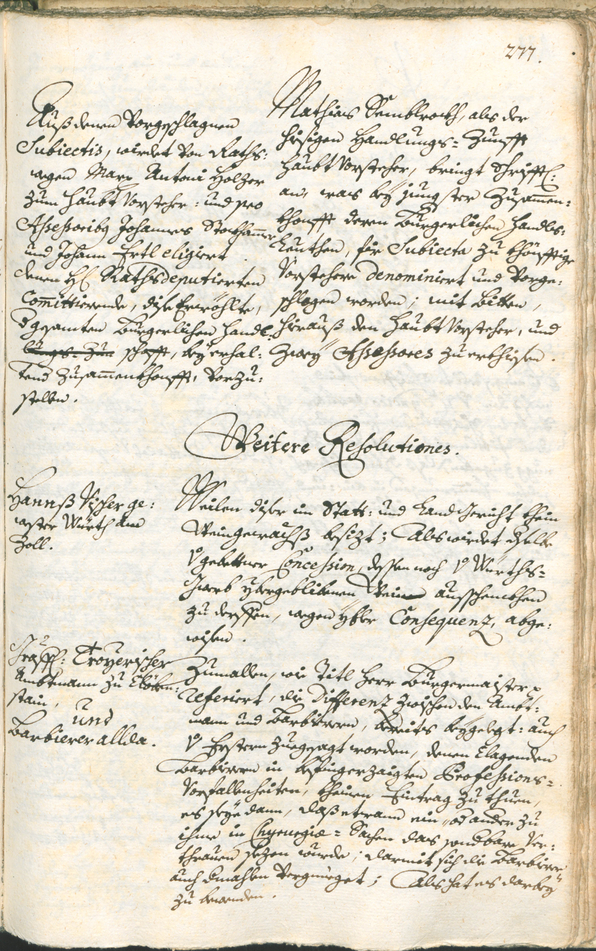 277.
Auß denen Vorgeschlagnen
Subiectis, wirdet von Raths:
wegen Marx Antoni Holzer
zum Haubt Vorsteher: und pro
Assessoribus Johannes Stockhamer
und Johann Ertl eligiert.
denen H: Rathsdeputierten
Committierende, dise Erwöhlte,
gesamten Burgerlichen Handl:
schafft, bey erhal:
tend Zusammenkhonfft, Vorzu:
stellen.
Mathias Semblroth, als der
hiesigen Handlungs= Zunfft
Haubt Vorsteher, bringt Schrifftl:
an, was bey jüngster Zusammen:
khonfft deren Burgerlichen Handls:
Leuthen, für Subiecta zu khönfftige
Vorstehere denominiert und Vorge:
schlagen worden; mit Bitten,
hierauß den Haubt Vorsteher, und
Zwey Assessores zuerkhisen.
Weitere Resolutiones.
Hannß Vischer ge:
wester Würth am
Zoll.
Weilen diser im Statt= und Landgericht khein
Weingewächß besizt; Als wirdet selber
gebettner Concession, dessen noch Würths=
gwerb ybergeblibnen Wein ausschenckhen
zu derffen, wegen ybler Consequenz, abge:
wisen.
Gräffl: Troyerischer
Ambtmann zu
stain,
und
Barbierer allda.
Zumallen, wie Titl Herr Burgermaister
referiert, die Differenz zwischen den Ambt=
mann und Barbierern, bereits beygelegt: auch
Erstern zuegesagt worden, denen Clagenden
Barbierern in Professions=
Vorfallenheiten, kheinen Eintrag zu thuen,
es seye dann, daß etwann ein, od ander zu
ihme in Chyrurgia= Sachen das sondbare Ver:
thrauen sezen wurde; darmit sich die Barbierer
auch Vergnüeget; Als hat es darbey
zu bewenden.